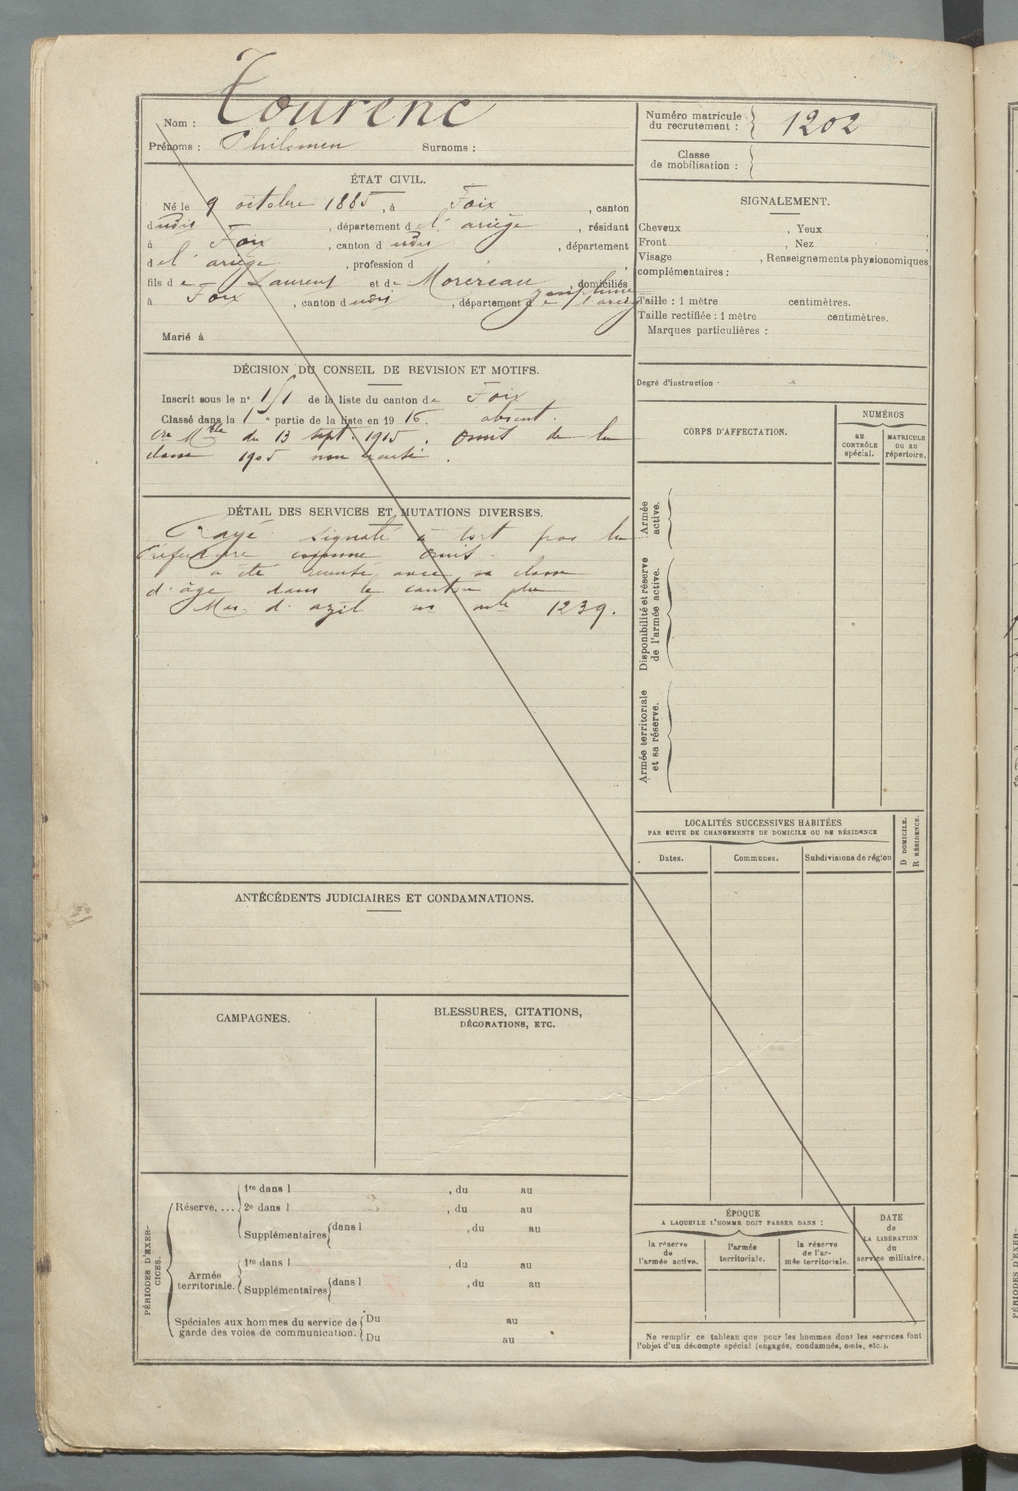 Nom : Tourenc
Prénoms : Philomen Surnoms :
ÉTAT CIVIL.
Né le 9 octobre 1885, à Foix, canton
dudis, département de l'ariège, résidant
à Foix, canton dudis, département
de l'ariège, profession d
fils de Laurent et de Moréreau, domiciliés
à Foix, canton dudis, département de l'ariège
Marié à
DÉCISION DU CONSEIL DE REVISION ET MOTIFS.
Inscrit sous le n° 151 de la liste du canton de Foix
Classé dans la 1e partie de la liste en 1916. absent.
Cre Mlle du 13 sept. 1915. Omis de la
classe 1905 non
DÉTAIL DES SERVICES ET MUTATIONS DIVERSES.
Rayé signalé à tort par la
Préfecture comme omis.
a été recensé avec sa classe
d'âge dans le canton du
Mas d'azil nº mle 1239.
ANTÉCÉDENTS JUDICIAIRES ET CONDAMNATIONS.
CAMPAGNES.
BLESSURES, CITATIONS,
DÉCORATIONS, ETC.
PÉRIODES D'EXER-
CICES.
Réserve. ...
1re dans l , du au
2e dans l , du au
Supplémentaires dans l , du au
Armée
territoriale.
1re dans l , du au
Supplémentaires dans l , du au
Spéciales aux hommes du service de
garde des voies de communication.
Du au
Du au
Numéro matricule
du recrutement : 1202
Classe
de mobilisation :
SIGNALEMENT.
Cheveux , Yeux
Front , Nez
Visage , Renseignements physionomiques
complémentaires :
Taille : 1 mètre centimètres.
Taille rectifiée : 1 mètre centimètres.
Marques particulières :
Degré d'instruction
CORPS D'AFFECTATION.
NUMÉROS
au
CONTRÔLE
spécial.
MATRICULE
ou au
répertoire.
Armée
active.
Disponibilité et réserve
de l'armée active.
Armée territoriale
et sa réserve.
LOCALITÉS SUCCESSIVES HABITÉES
PAR SUITE DE CHANGEMENTS DE DOMICILE OU DE RÉSIDENCE
Dates.
Communes.
Subdivisions de région
D DOMICILE.
R RÉSIDENCE.
ÉPOQUE
A LAQUELLE L'HOMME DOIT PASSER DANS :
la réserve
de
l'armée active.
l'armée
territoriale.
la réserve
de l'ar-
mée territoriale.
DATE
de
LA LIBÉRATION
du
service militaire.
Ne remplir ce tableau que pour les hommes dont les services font
l'objet d'un décompte spécial (engagés, condamnés, omis, etc.).
PÉRIODES D'EXER-